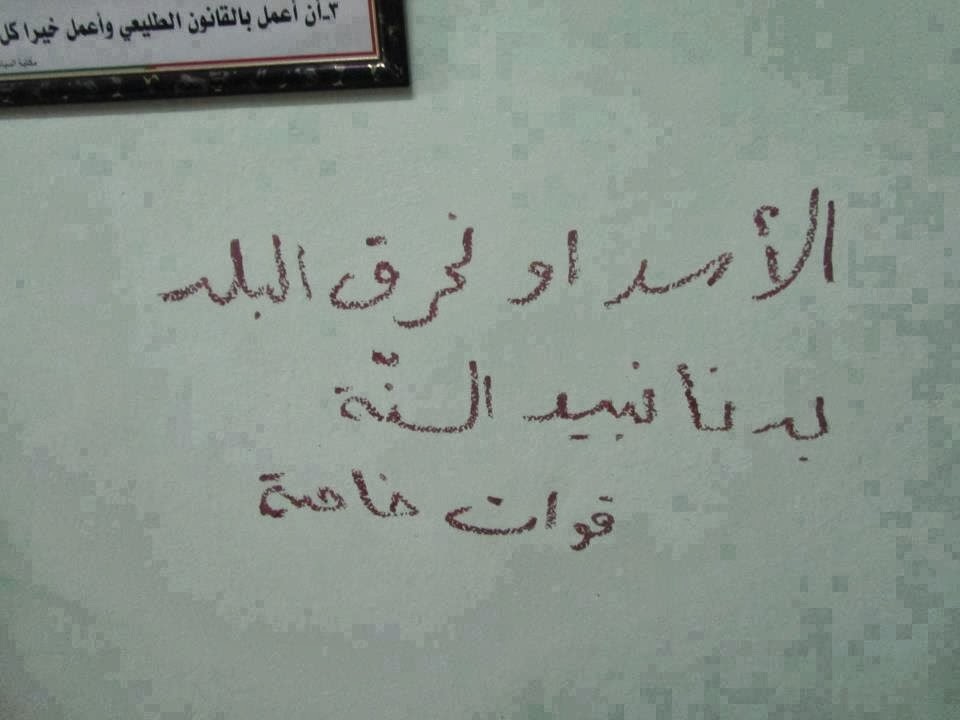 ٣-أن أعمل بالقانون الطليعي وأعمل خيرا كل
الأسد او نحرق البلد
بدنا نبيد السنّة
قوات خاصة